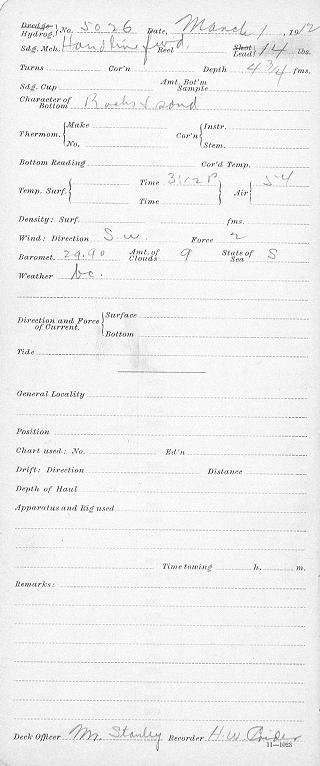 Dredge Hydrog. } No. 5026 Date, March 1, 1912
Sdg. Mch. Handline fwd. Reel Shot Lead } 14 lbs.
Turns Cor'n Depth 4 3/4 fms.
Sdg. Cup Amt. Bot'm Sample
Character of Bottom Rocks & sand
Thermom. { Make No. Cor'n { Instr. Stem.
Bottom Reading Cor'd Temp.
Temp. Surf. { Time 3:12 P. Time Air { 54
Density: Surf. fms.
Wind: Direction S.W. Force 2
Baromet. 29.90 Amt. of Clouds 9 State of Sea S
Weather bc.
Direction and Force of Current. { Surface Bottom
Tide
General Locality
Position
Chart used: No. Ed'n
Drift: Direction Distance
Depth of Haul
Apparatus and Rig used
Time towing h. m.
Remarks:
Deck Officer M. Stanley Recorder H.W.
11—1023